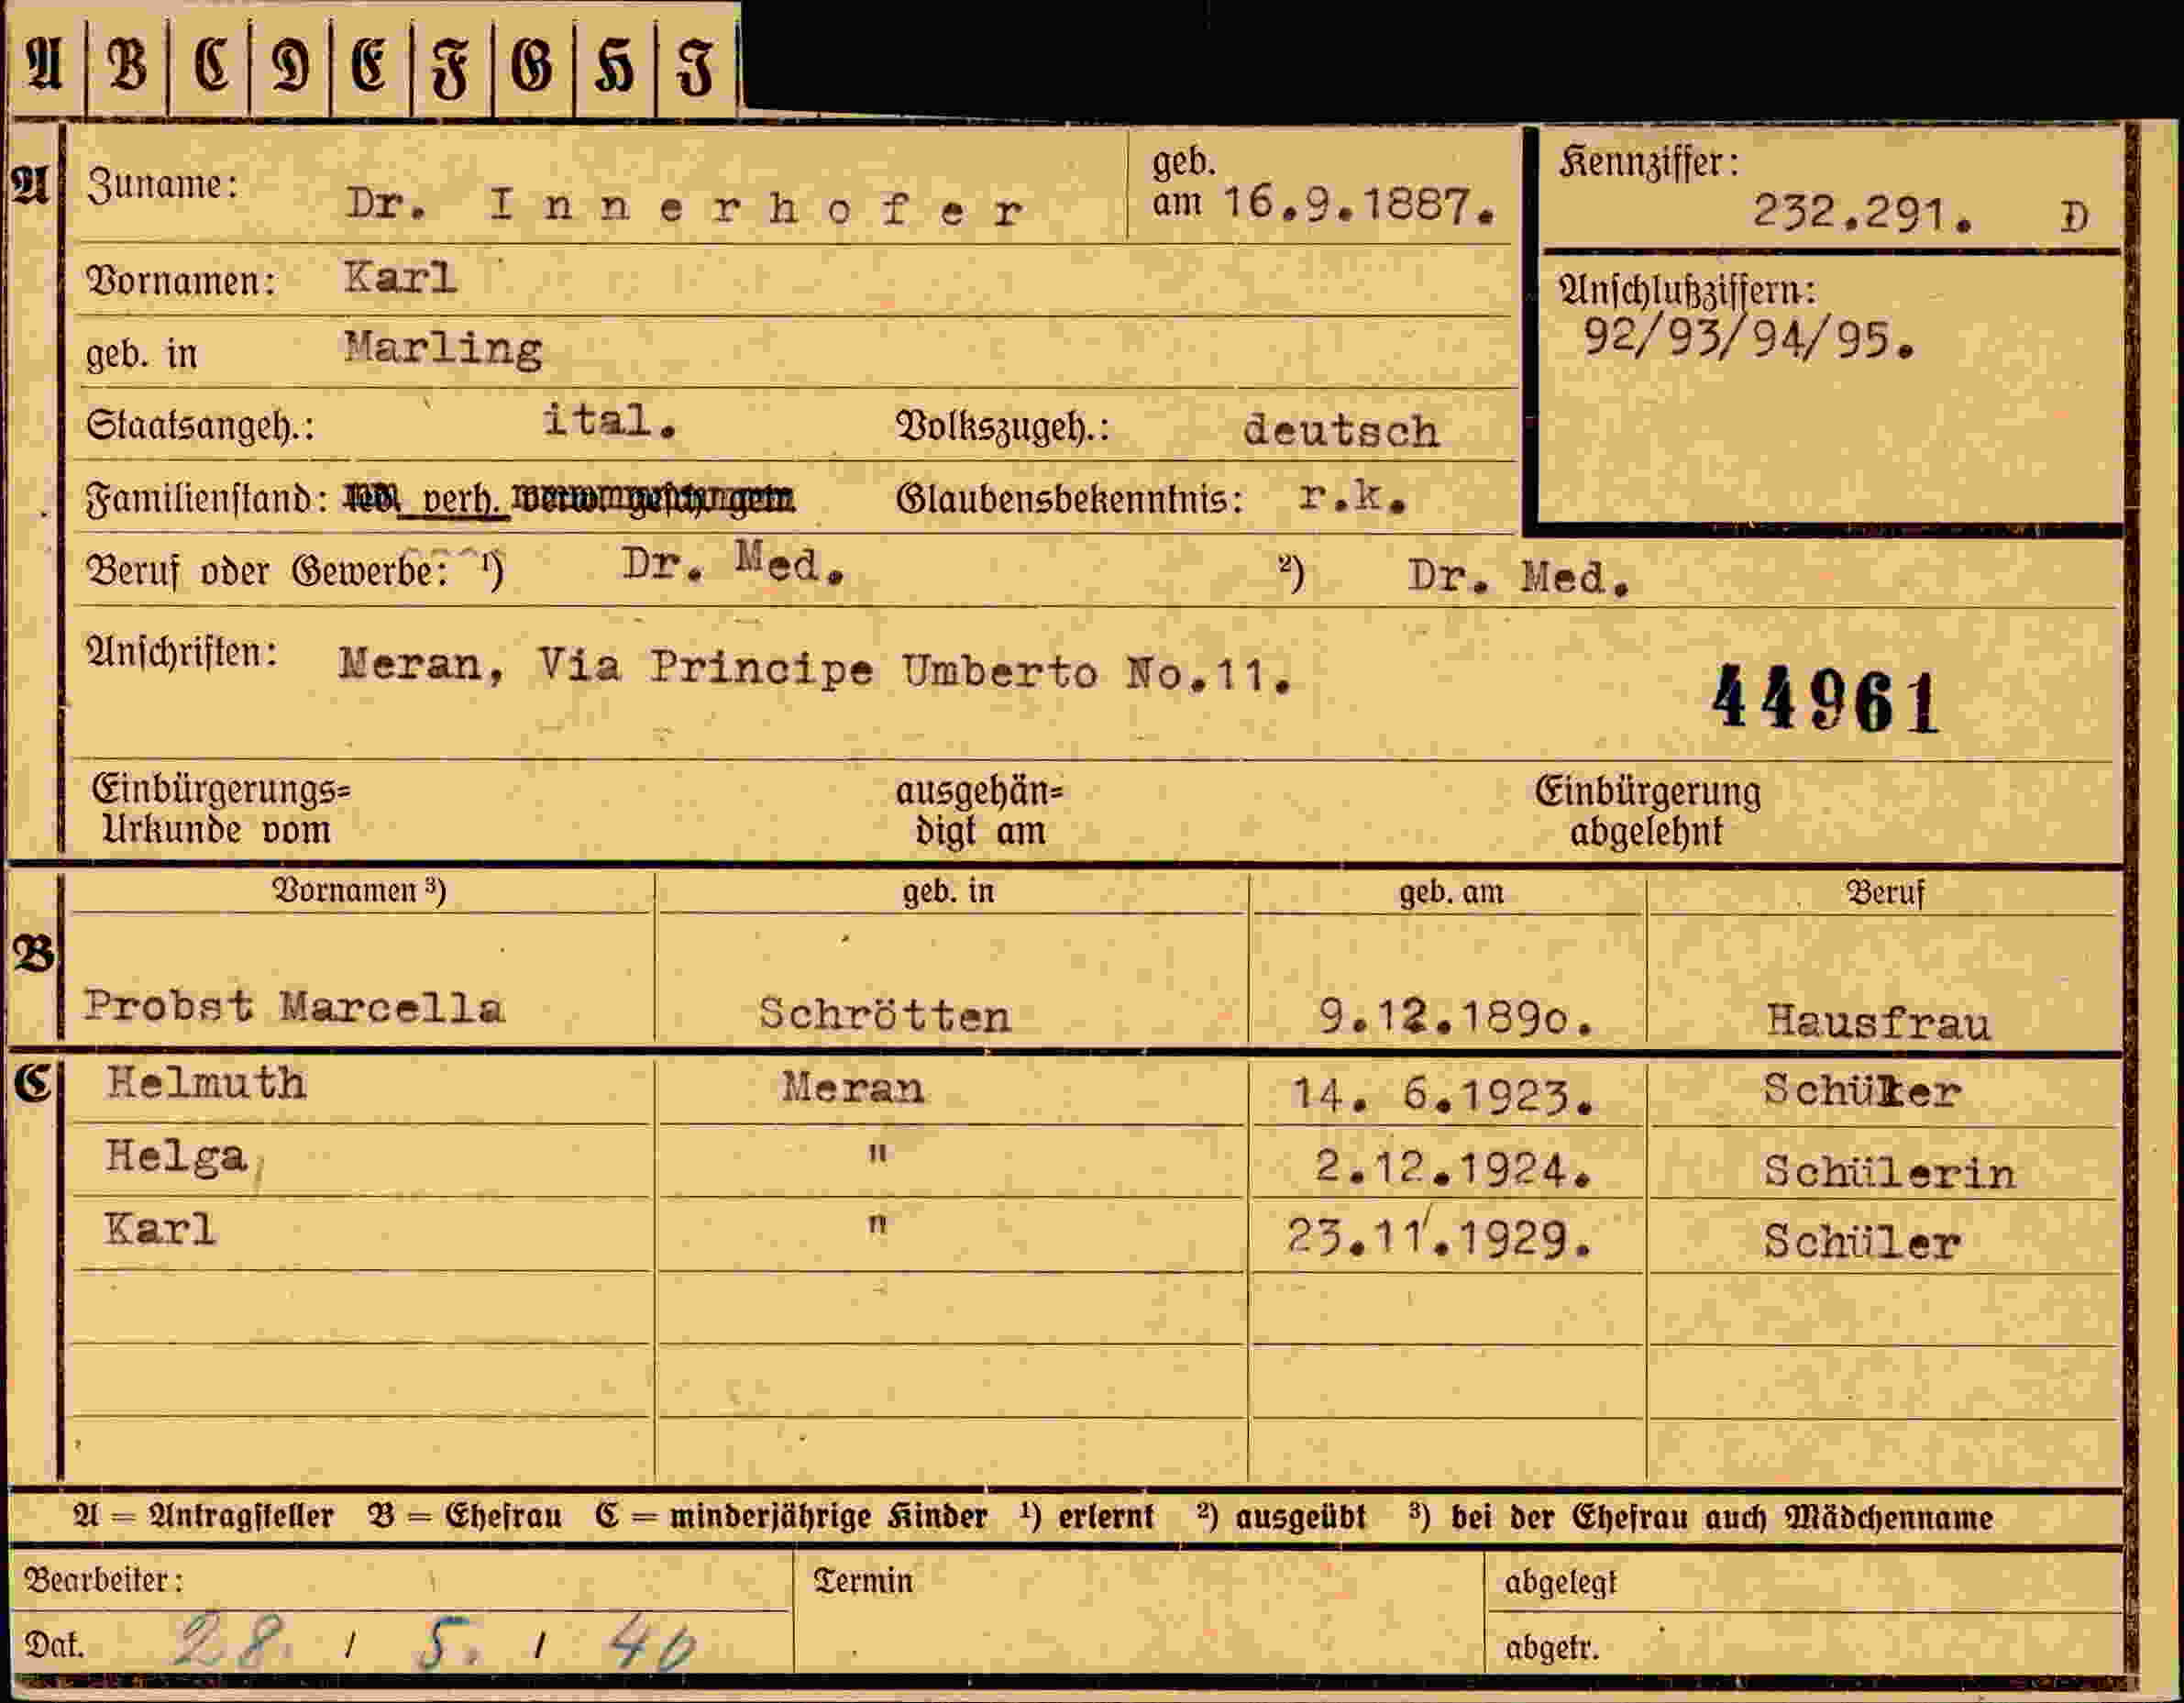 A B C D E F G H J
A Zuname: Dr. Innerhofer geb. am 16.9.1887. Kennziffer: 232.291. D
Vornamen: Karl Anschlußziffern:
geb. in Marling 92/93/94/95.
Staatsangeh.: ital. Volkszugeh.: deutsch
Familienstand: verh. Glaubensbekenntnis: r.k.
Beruf oder Gewerbe: ¹) Dr. Med. ²) Dr. Med.
Anschriften: Meran, Via Principe Umberto No.11. 44961
Einbürgerungs= ausgehän= Einbürgerung
Urkunde vom digt am abgelehnt
Vornamen ³) geb. in geb. am Beruf
B Probst Marcella Schrötten 9.12.1890. Hausfrau
C Helmuth Meran 14. 6.1923. Schüler
Helga " 2.12.1924. Schülerin
Karl " 23.11.1929. Schüler
A = Antragsteller B = Ehefrau C = minderjährige Kinder ¹) erlernt ²) ausgeübt ³) bei der Ehefrau auch Mädchenname
Bearbeiter: Termin abgelegt
Dat. 28. / 5. / 40 abgetr.